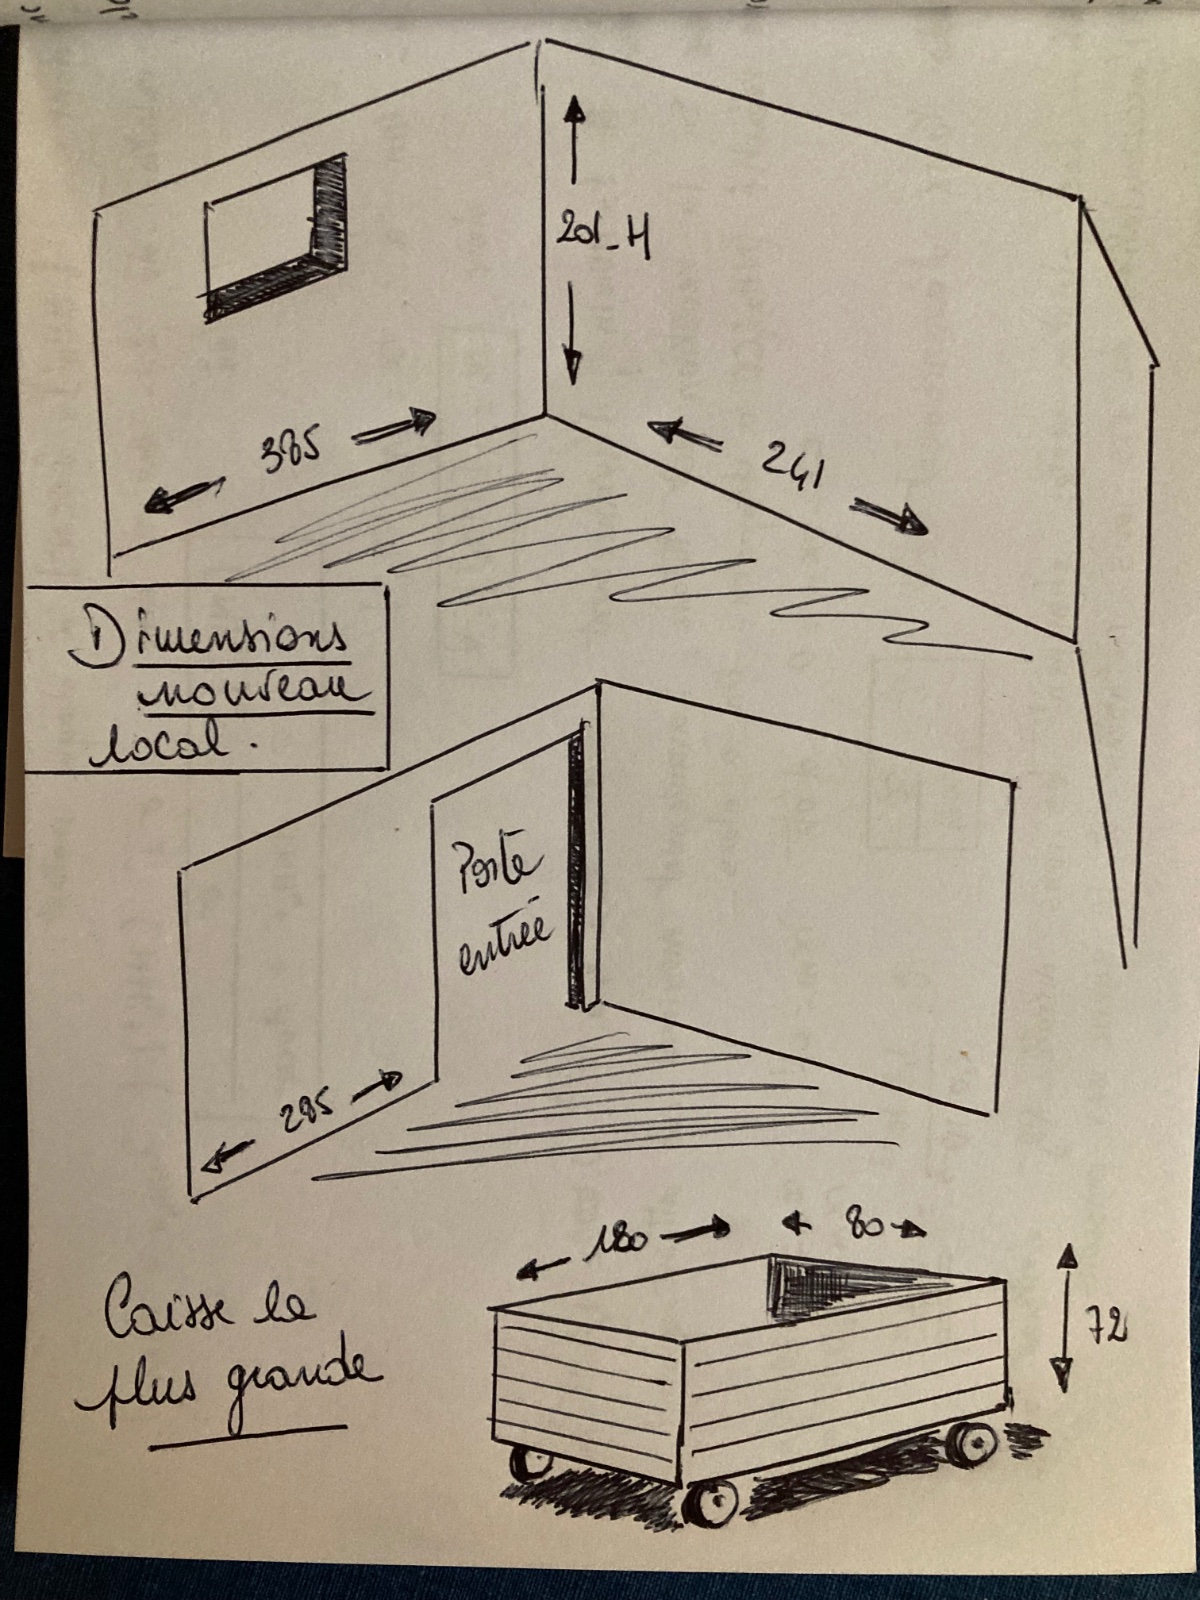 201_H
385
241
Dimensions
nouveau
local.
Porte
entrée
285
180 80
72
Caisse la
plus grande